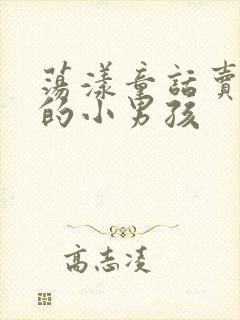 蕩漾童話賣
的小男孩
高志凌